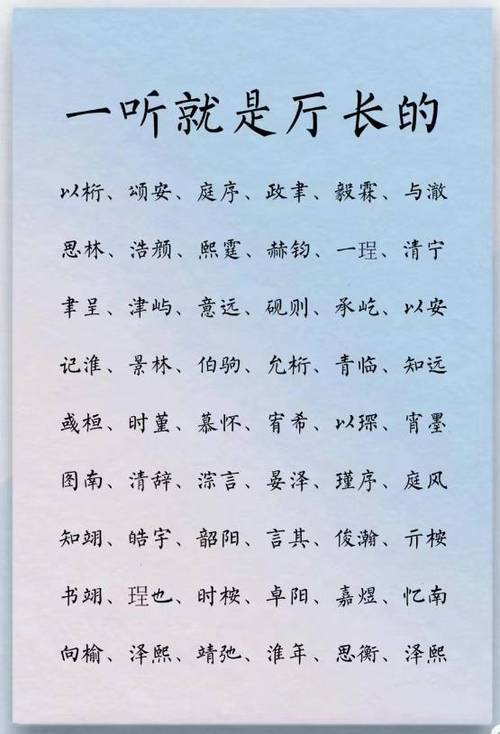 一听就是厅长的
以桁、颂安、庭序、政聿、毅霖、与澈
思林、浩颜、熙霆、赫钧、一珵、清宁
聿呈、津屿、意远、砚则、承屹、以安
记淮、景林、伯驹、允桁、青临、知远
彧桓、时堇、慕怀、宥希、以琛、宵墨
图南、清辞、淙言、晏泽、瑾序、庭风
知翊、皓宇、韶阳、言其、俊瀚、亓桉
书翊、珵也、时桉、卓阳、嘉煜、忆南
向榆、泽熙、靖弛、淮年、思衡、泽熙